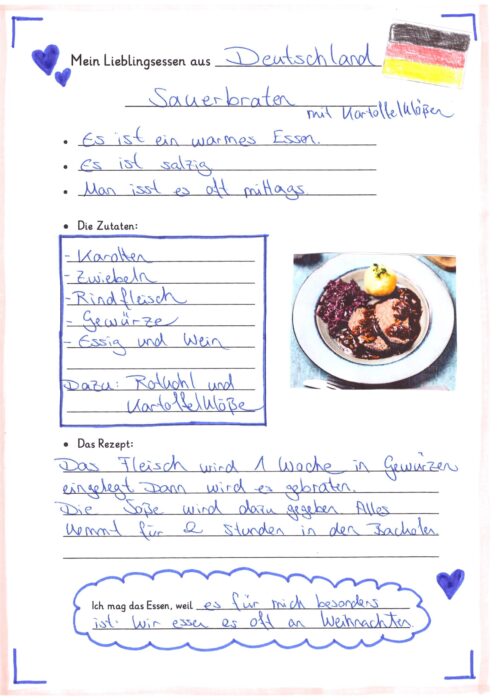 Mein Lieblingsessen aus Deutschland
Sauerbraten
mit Kartoffelklößen
• Es ist ein warmes Essen.
• Es ist salzig
• Man isst es oft mittags.
• Die Zutaten:
- Karotten
- Zwiebeln
- Rindfleisch
- Gewürze
- Essig und Wein
Dazu: Rotkohl und
Kartoffelklöße
• Das Rezept:
Das Fleisch wird 1 Woche in Gewürzen
eingelegt. Dann wird es gebraten.
Die Soße wird dazu gegeben. Alles
kommt für 2 Stunden in den Backofen
Ich mag das Essen, weil es für mich besonders
ist. Wir essen es oft an Weihnachten.